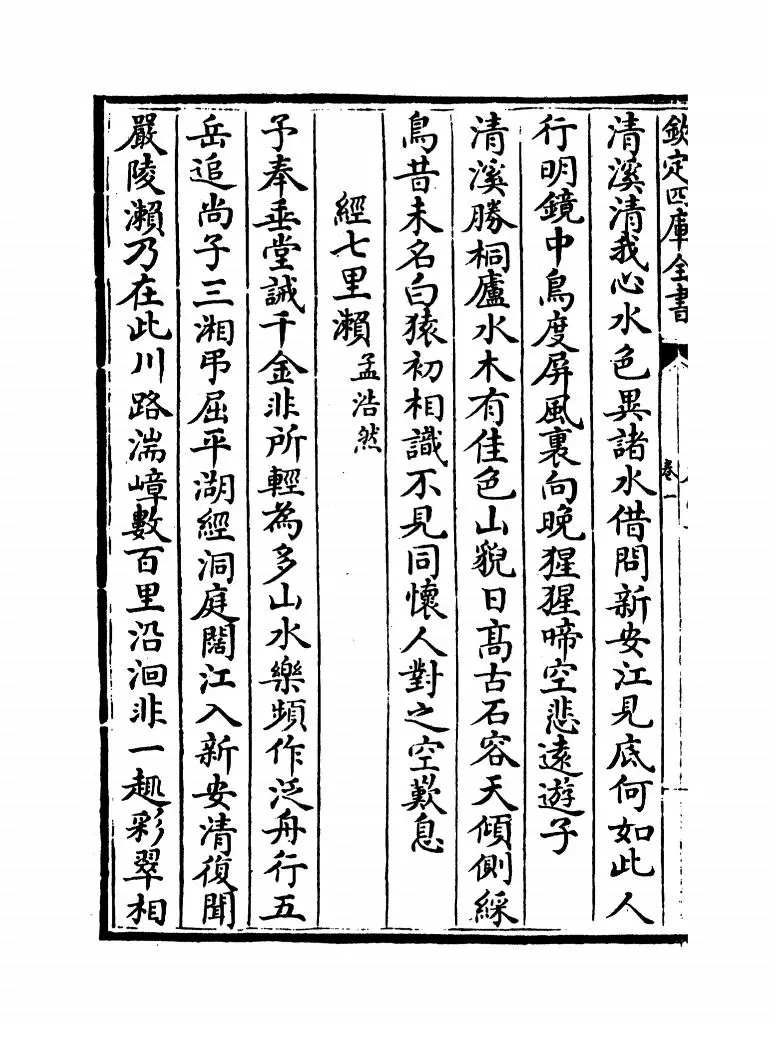 欽定四庫全書
卷一
清溪清我心水色異諸水借問新安江見底何如此人
行明鏡中鳥度屏風裏向晚猩猩啼空悲遠遊子
清溪勝桐廬水木有佳色山貌日髙古石容天傾側綵
鳥昔未名白猿初相識不見同懷人對之空歎息
經七里瀨孟浩然
予奉垂堂誡千金非所輕為多山水樂頻作泛舟行五
岳追尚子三湘弔屈平湖經洞庭闊江入新安清復聞
嚴陵瀨乃在此川路湍嶂數百里沿洄非一趣彩翠相